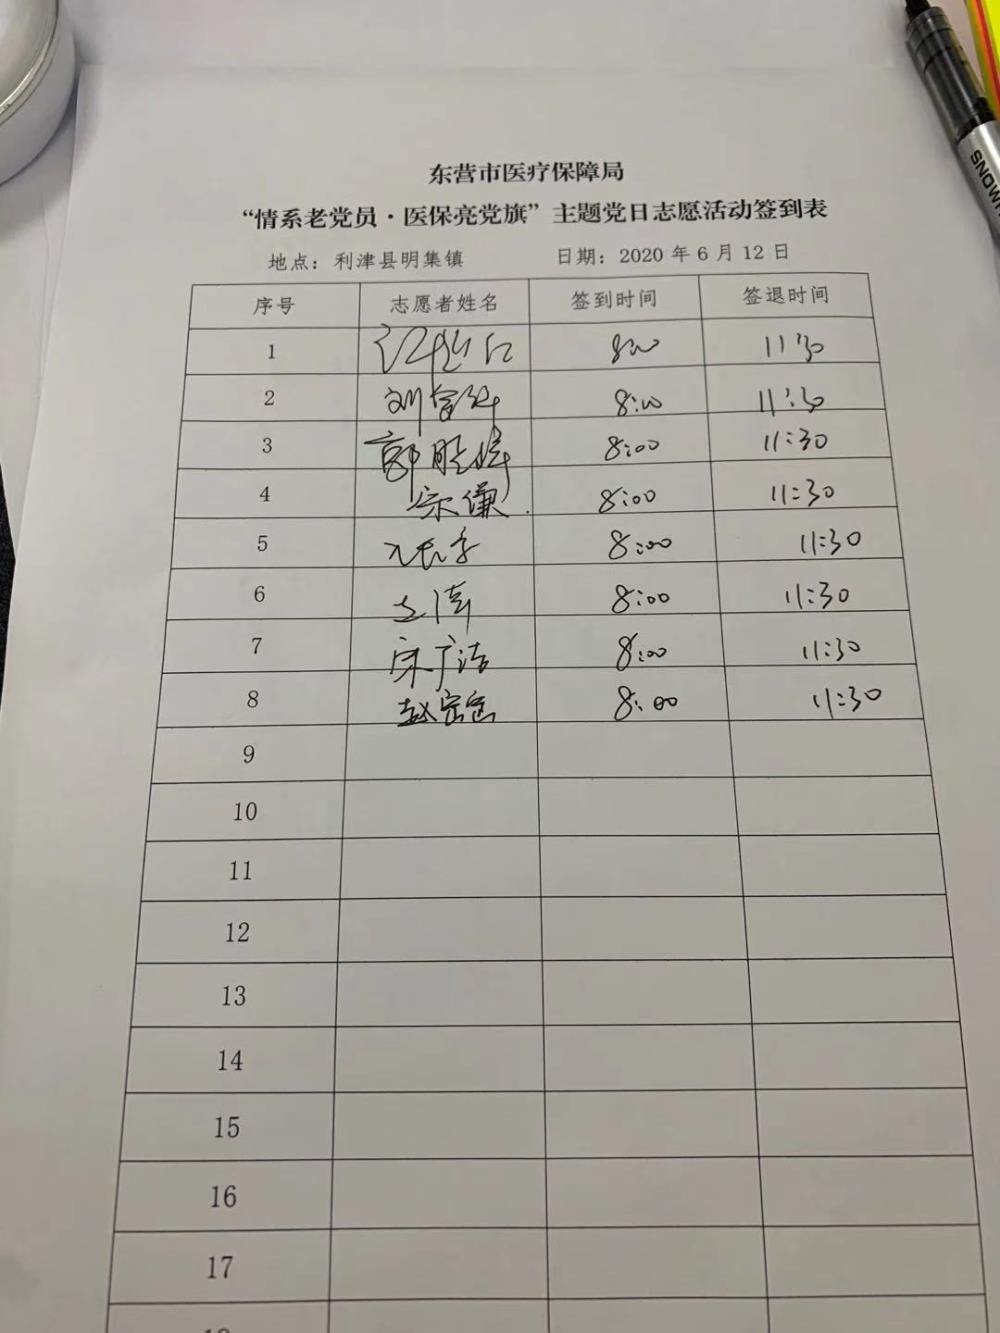 东营市医疗保障局
“情系老党员·医保亮党旗”主题党日志愿活动签到表
地点：利津县明集镇 日期：2020 年 6 月 12 日
序号 志愿者姓名 签到时间 签退时间
1 8:00 11:30
2 8:00 11:30
3 郭 8:00 11:30
4 宗谦 8:00 11:30
5 8:00 11:30
6 8:00 11:30
7 宋广洁 8:00 11:30
8 赵宝宝 8:00 11:30
9
10
11
12
13
14
15
16
17
SNOWM